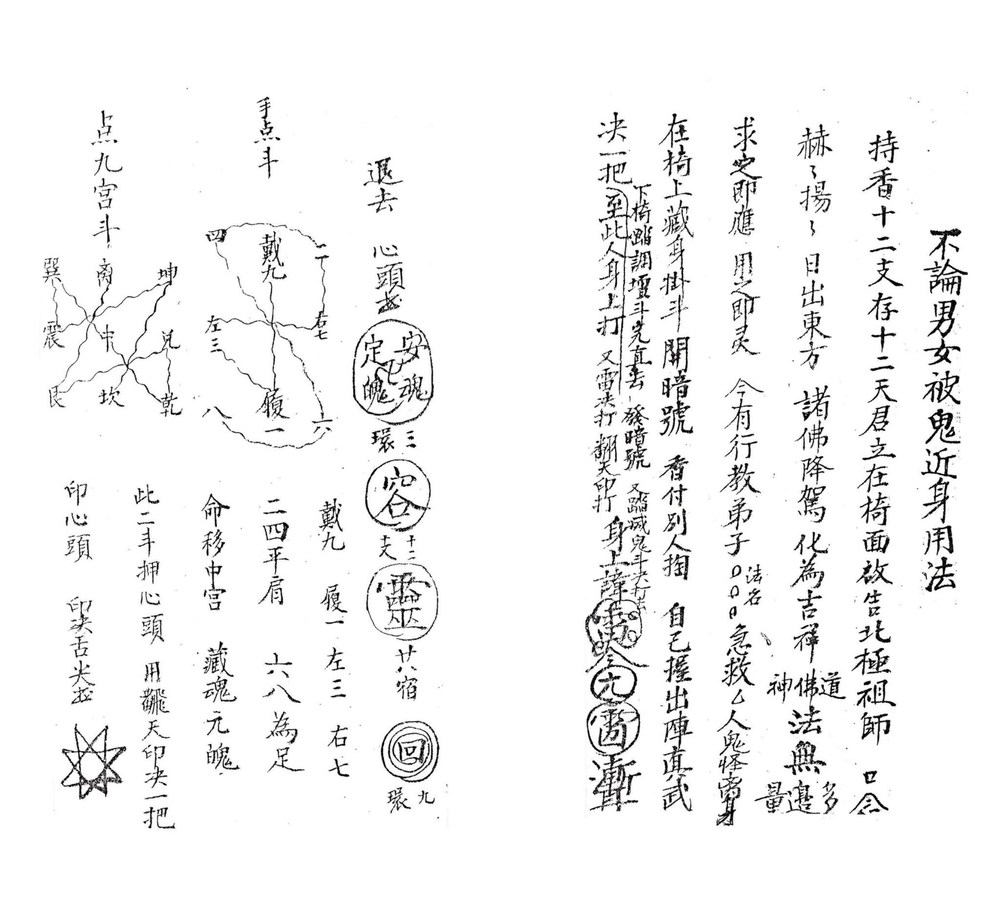 不論男女被鬼近身用法
持香十二支存十二天君立在椅面啟告北極祖師 口念
赫〻揚〻 日出東方 諸佛降駕化為吉祥 道佛神 法無多邊量
求之即應 用之即灵 今有行教弟子 法名 急救厶人鬼怪离身
在椅上藏身掛斗 開暗號 香付別人掏 自己握出陣真武
決一把 至此人身上打 又雷決打 翻天印打 身上諱
下椅踏調壇斗先直去 發暗號 又踏滅鬼斗決打去
漸
退去 心頭
安魂定魄
三環
十二支
靈
廿八宿
回
九環
戴九 履一 左三 右七
二四平肩 六八為足
命移中宮 藏魂元魄
此二斗押心頭 用翻天印決一把
印心頭 印決舌尖
手点斗
二
戴九
四
右七
左三
六
履一
八
点九宮斗
坤
离
巽
兌
中
震
乾
坎
艮